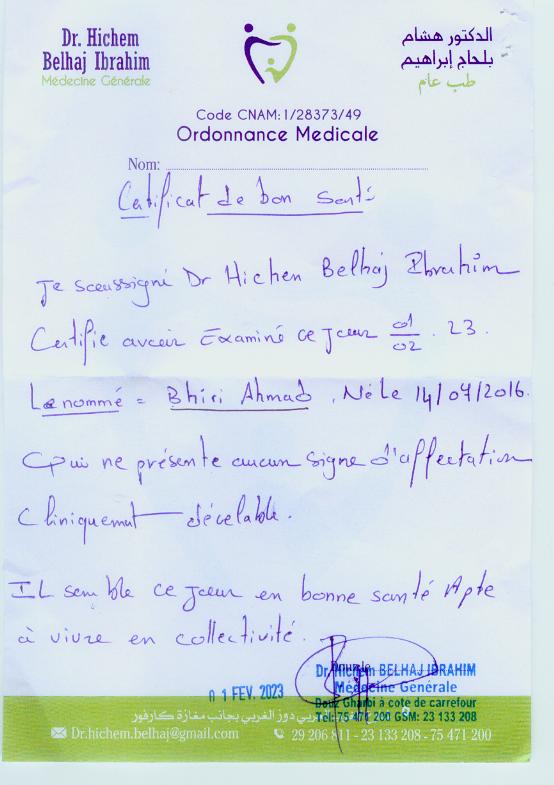 Dr. Hichem
Belhaj Ibrahim
Médecine Générale
الدكتور هشام
بلحاج إبراهيم
طب عام
Code CNAM: 1/28373/49
Ordonnance Medicale
Nom:
Certificat de bon santé
Je soussigné Dr Hichem Belhaj Ibrahim
Certifie avoir Examiné ce jour 01/02. 23.
Le nommé = Bhiri Ahmad, Né le 14/07/2016.
Qui ne présente aucun signe d'affectation
Cliniquement décelable.
IL semble ce jour en bonne santé Apte
à vivre en collectivité.
01 FEV. 2023
Dr Hichem BELHAJ IBRAHIM
Médecine Générale
Douz Gharbi à cote de carrefour
Tél: 75 471 200 GSM: 23 133 208
دوز الغربي بجانب مغازة كارفور
Dr.hichem.belhaj@gmail.com
29 206 811 - 23 133 208 - 75 471 200